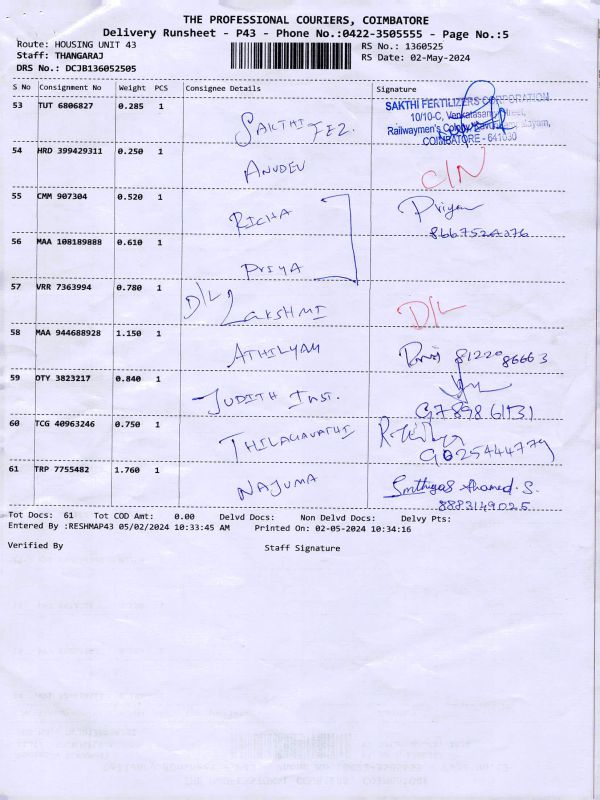 THE PROFESSIONAL COURIERS, COIMBATORE
Delivery Runsheet - P43 - Phone No.:0422-3505555 - Page No.:5
Route: HOUSING UNIT 43
Staff: THANGARAJ
DRS No.: DCJB136052505
RS No.: 1360525
RS Date: 02-May-2024
S No Consignment No Weight PCS Consignee Details Signature
53 TUT 6806827 0.285 1 SAKTHI FEZ.
SAKTHI FERTILIZERS CORPORATION
10/10-C, Venkatasamy Street,
Railwaymen's Colony
COIMBATORE - 641030
54 HRD 399429311 0.250 1 ANUDEV C/N
55 CMM 907304 0.520 1 RICHA Priya
8667524076
56 MAA 108189888 0.610 1 PRIYA
57 VRR 7363994 0.780 1 D/L LAKSHMI D/L
58 MAA 944688928 1.150 1 ATHILYAM 8122086663
59 DTY 3823217 0.840 1 JUDITH INST.
60 TCG 40963246 0.750 1 THILAGAVATHI
9025444779
61 TRP 7755482 1.760 1 NAJUMA Ahamed. S.
8883149025
Tot Docs: 61 Tot COD Amt: 0.00 Delvd Docs: Non Delvd Docs: Delvy Pts:
Entered By :RESHMAP43 05/02/2024 10:33:45 AM Printed On: 02-05-2024 10:34:16
Verified By Staff Signature